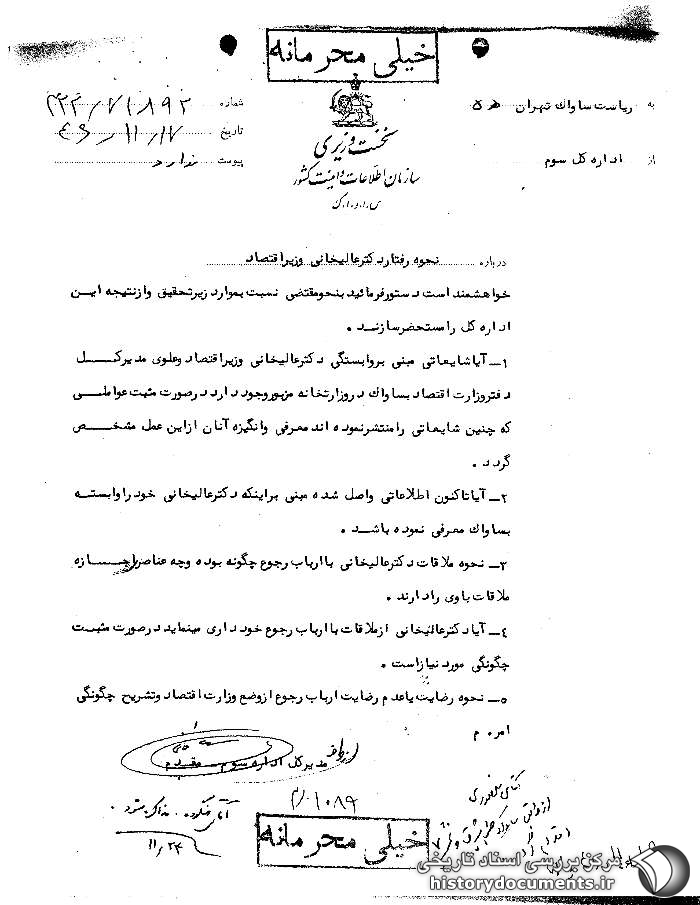 خیلی محرمانه
به ریاست ساواک تهران ۵ ه ۳
از اداره کل سوم
نخست وزیری
سازمان اطلاعات و امنیت کشور
س.ا.و.ا.ک
شماره ۳۲۲/۷۱۸۹۲
تاریخ ۴۶/۱۱/۱۷
پیوست ندارد
درباره نحوه رفتار دکتر عالیخانی وزیر اقتصاد
خواهشمند است دستور فرمائید بنحو مقتضی نسبت بموارد زیر تحقیق و از نتیجه این
اداره کل را مستحضر سازند .
۱ــ آیا شایعاتی مبنی بر وابستگی دکتر عالیخانی وزیر اقتصاد و علوی مدیر کل
دفتر وزارت اقتصاد بساواک در وزارتخانه مزبور وجود دارد در صورت مثبت عواملی
که چنین شایعاتی را منتشر نموده اند معرفی و انگیزه آنان از این عمل مشخص
گردد .
۲ــ آیا تاکنون اطلاعاتی واصل شده مبنی بر اینکه دکتر عالیخانی خود را وابسته
بساواک معرفی نموده باشد .
۳ــ نحوه ملاقات دکتر عالیخانی با ارباب رجوع چگونه بوده و چه عناصر اجازه
ملاقات با وی را دارند .
٤ــ آیا دکتر عالیخانی از ملاقات با ارباب رجوع خودداری مینماید در صورت مثبت
چگونگی مورد نیاز است .
۵ــ نحوه رضایت یا عدم رضایت ارباب رجوع از وضع وزارت اقتصاد و تشریح چگونگی
امر . م
مدیر کل اداره سوم مقدم
۱۰۸۹/م
مذاکره شود .
۱۱/۲۴
خیلی محرمانه
مرکز بررسی اسناد تاریخی
historydocuments.ir